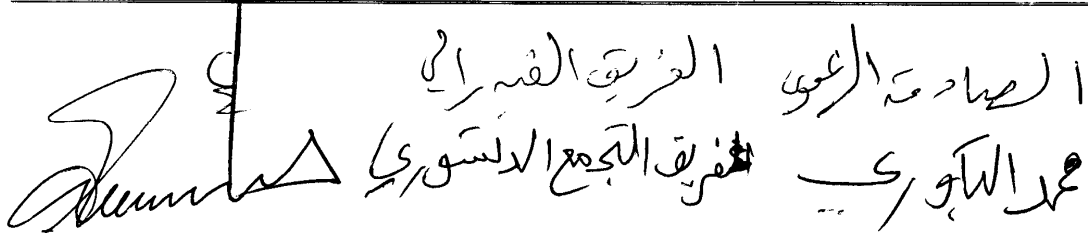 الصادق الرغوي الفريق الفيدرالي
محمد البكوري فريق التجمع الدستوري